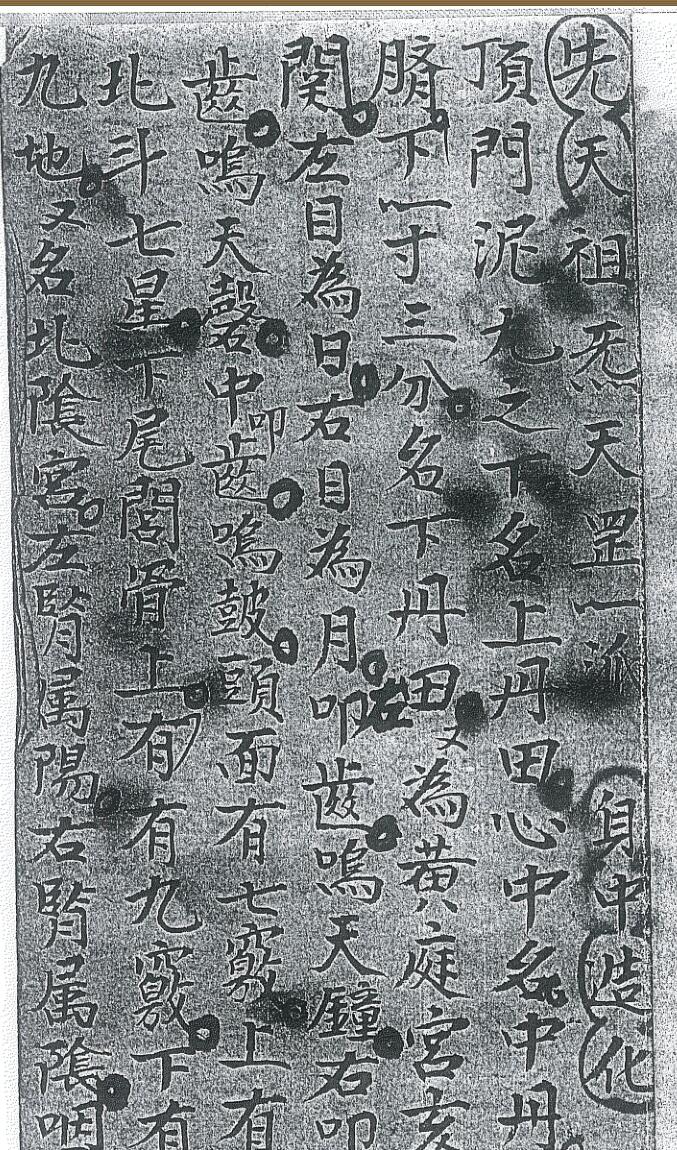 先天祖炁天罡一派 身中造化
頂門泥丸之下名上丹田心中名中丹
臍下一寸三分名下丹田又為黃庭宮玄
関左目為日右目為月叩左齒鳴天鐘右叩
齒鳴天磬中叩齒鳴鼓頭面有七竅上有
北斗七星下尾閭骨上有有九竅下有
九地又名北陰宮左腎属陽右腎属陰咽